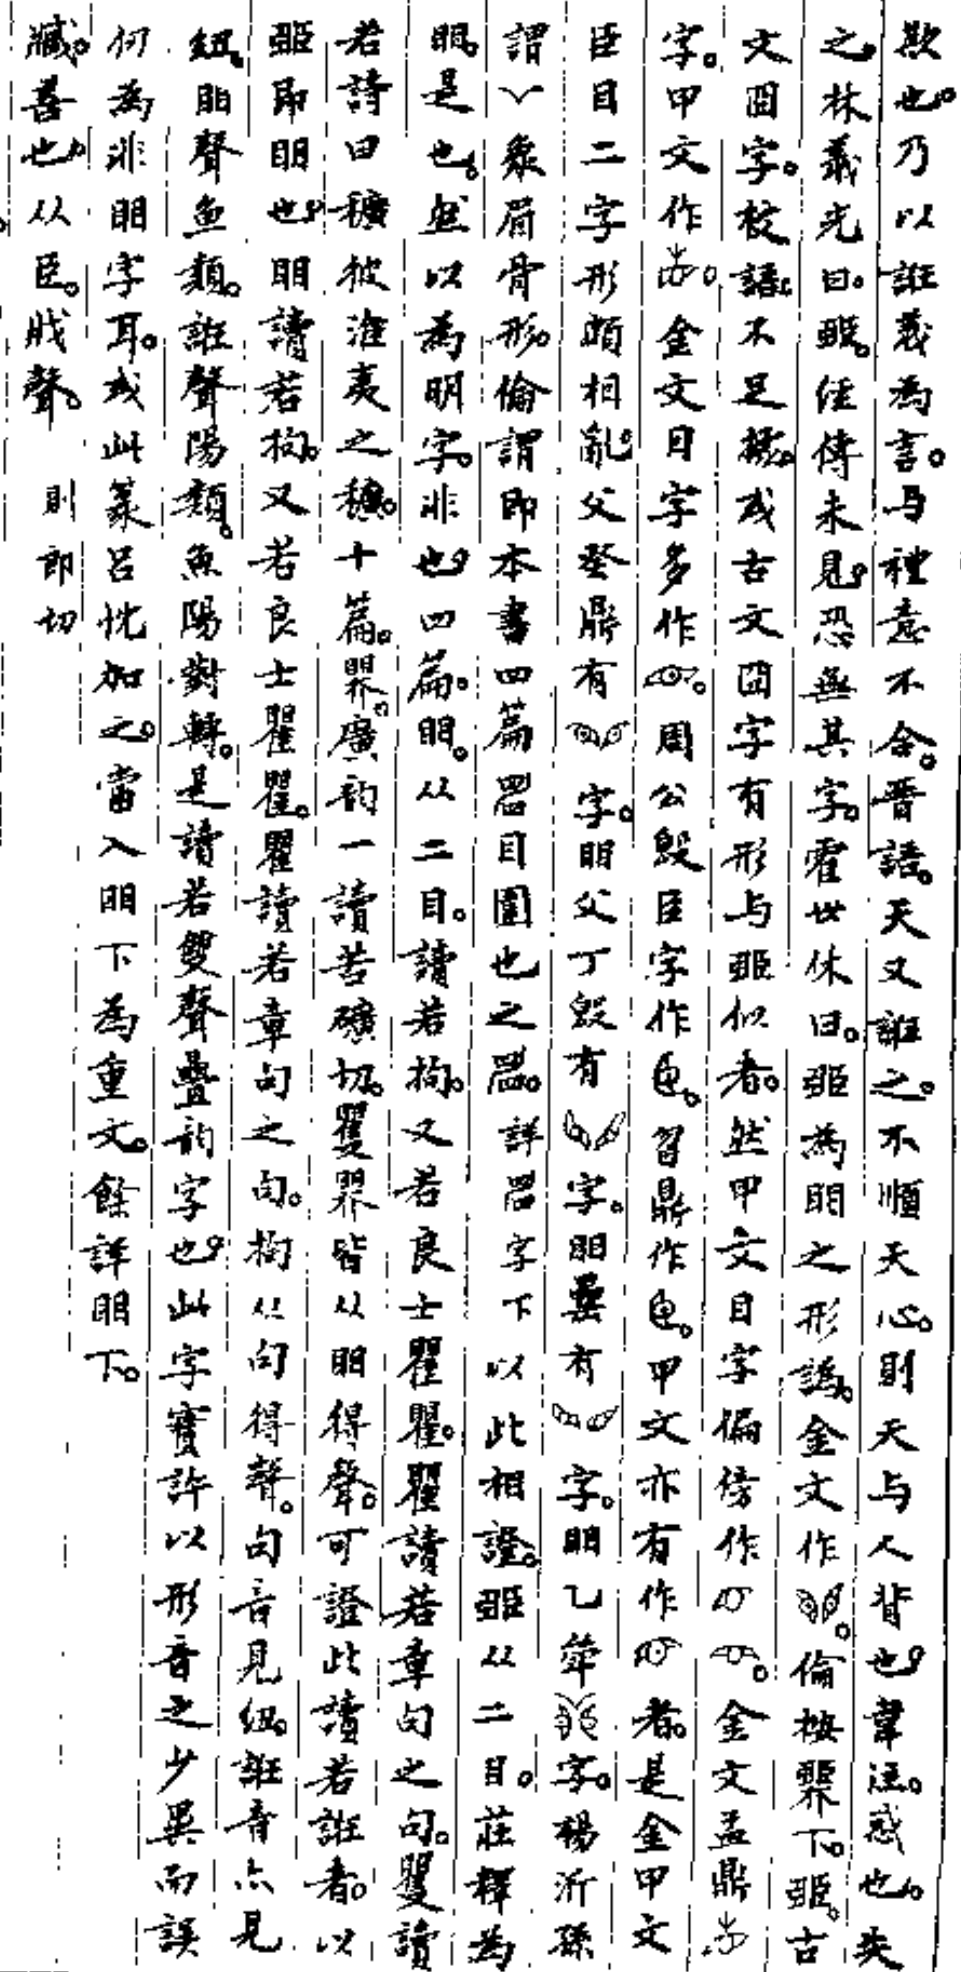 欺也。乃以誑義為言。与禮意不合。晋語。天又誑之。不順天心。則天与人背也。韋注。惑也。失
之。林義光曰。䀠。经傳未見。恐無其字。霍世休曰。䀠為䀠之形譌。金文作。倫按䍏下。䀠。古
文囧字。校語。不足據。或古文囧字有形与䀠似者。然甲文目字偏傍作。金文盂鼎
字。甲文作。金文目字多作。周公𣪘臣字作。曶鼎作。甲文亦有作者。是金甲文
臣目二字形頗相亂。父癸鼎有字。䀠父丁𣪘有字。䀠罍有字。䀠乙觶字。楊沂孫
謂丷象眉骨形。倫謂即本書四篇目圍也之。詳字下以此相證。䀠从二目。莊釋為
䀠。是也。然以為明字。非也。四篇。䀠。从二目。讀若拘。又若良士瞿瞿。瞿讀若章句之句。矍讀
若詩曰穬彼淮夷之穬。十篇。䍏。廣韵一讀苦礦切。矍䍏皆从䀠得聲。可證此讀若誑者。以
䀠即䀠也。䀠讀若拘。又若良士瞿瞿。瞿讀若章句之句。拘从句得聲。句音見紐。誑音亦見
紐。䀠聲魚類。誑聲陽類。魚陽對轉。是讀若雙聲疊韵字也。此字實許以形音之少異而誤
何為非䀠字耳。或此篆呂忱加之。當入䀠下為重文。餘詳䀠下。
臧。善也。从臣。戕聲。 則郎切